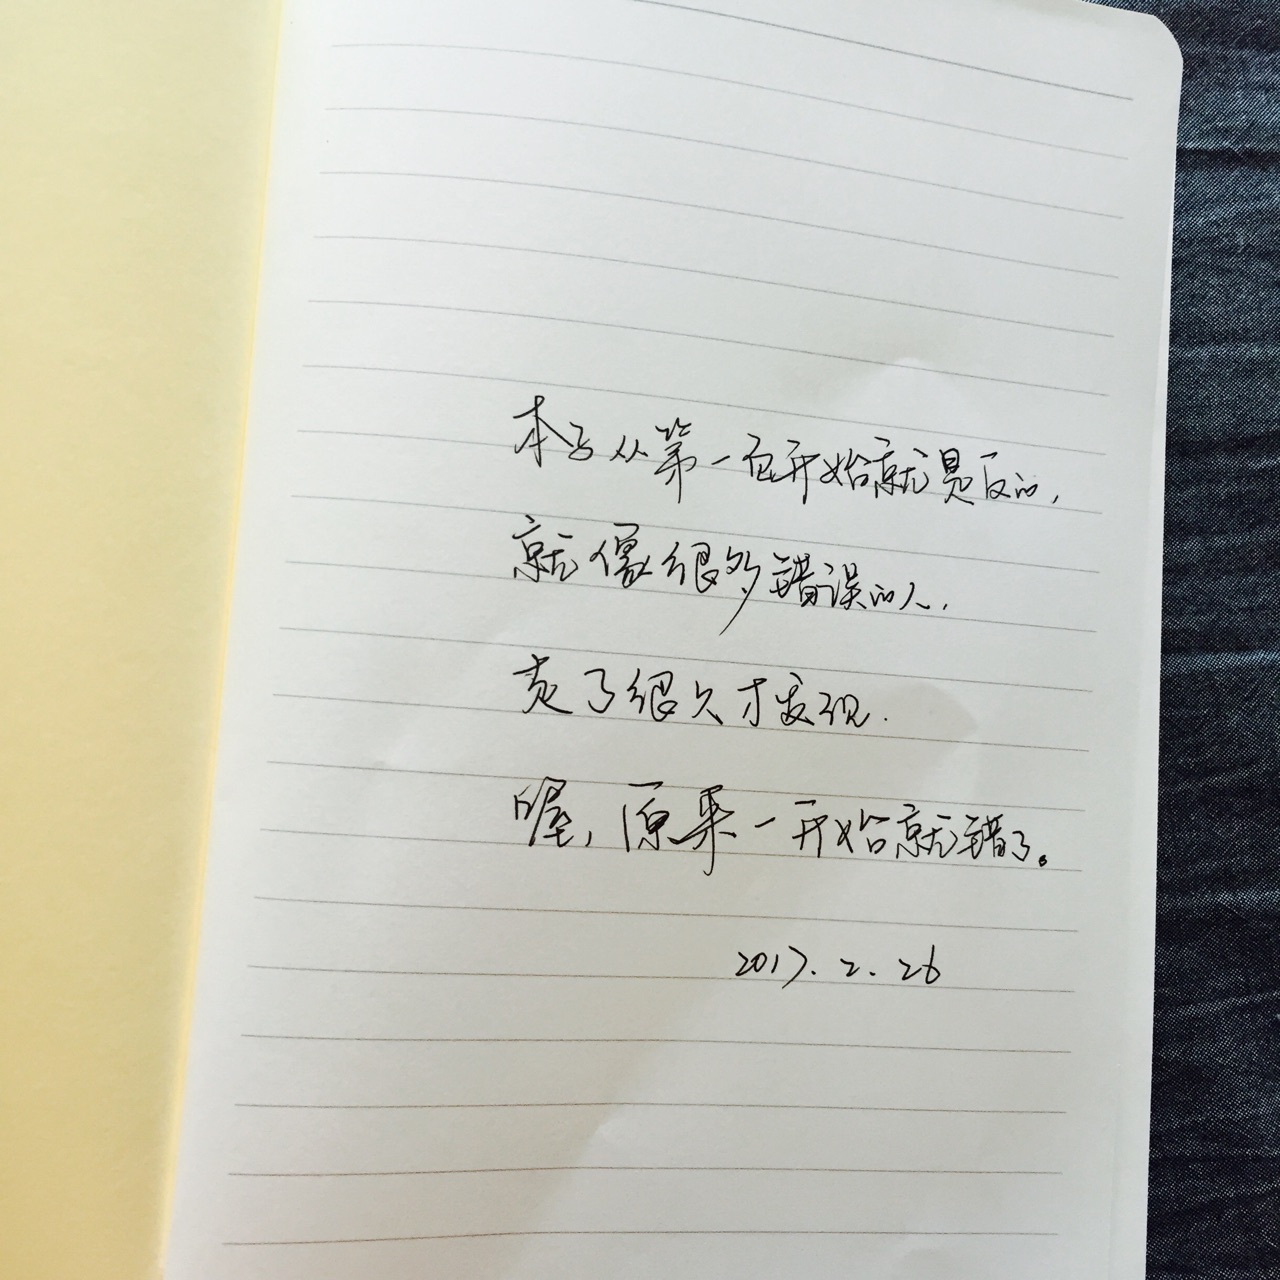 本子从第一页开始就是反的，
就像很多错误的人，
走了很久才发现．
喔，原来一开始就错了。
2017.2.26